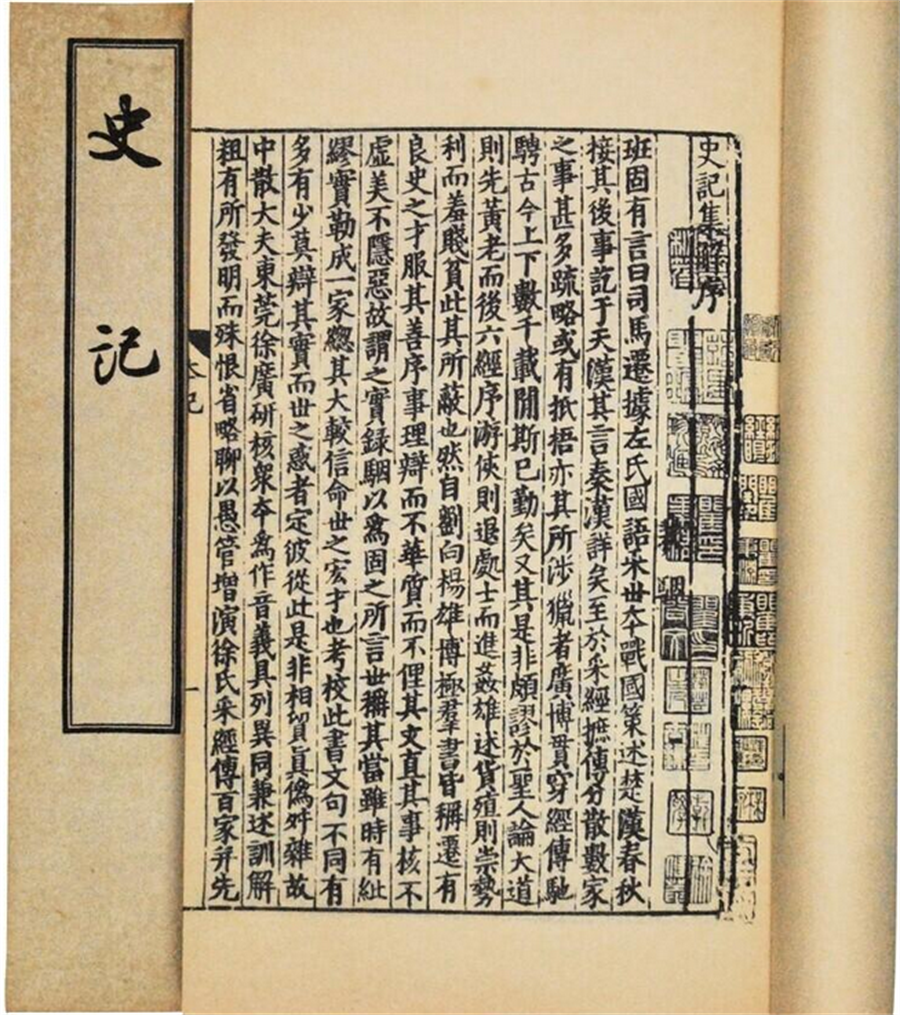 史記
史記集解序
班固有言曰司馬遷據左氏國語采世本戰國策述楚漢春秋
接其後事訖于天漢其言秦漢詳矣至於采經摭傳分散數家
之事甚多疏略或有抵梧亦其所涉獵者廣博貫穿經傳馳
騁古今上下數千載閒斯已勤矣又其是非頗謬於聖人論大道
則先黃老而後六經序游俠則退處士而進姦雄述貨殖則崇勢
利而羞賤貧此其所蔽也然自劉向楊雄博極羣書皆稱遷有
良史之才服其善序事理辯而不華質而不俚其文直其事核不
虛美不隱惡故謂之實録駰以爲固之所言世稱其當雖時有紕
繆實勒成一家緫其大較信命世之宏才也考校此書文句不同有
多有少莫辯其實而世之惑者定彼從此是非相貿眞僞舛雜故
中散大夫東莞徐廣研核衆本爲作音義具列異同兼述訓解
粗有所發明而殊恨省略聊以愚管增演徐氏采經傳百家并先